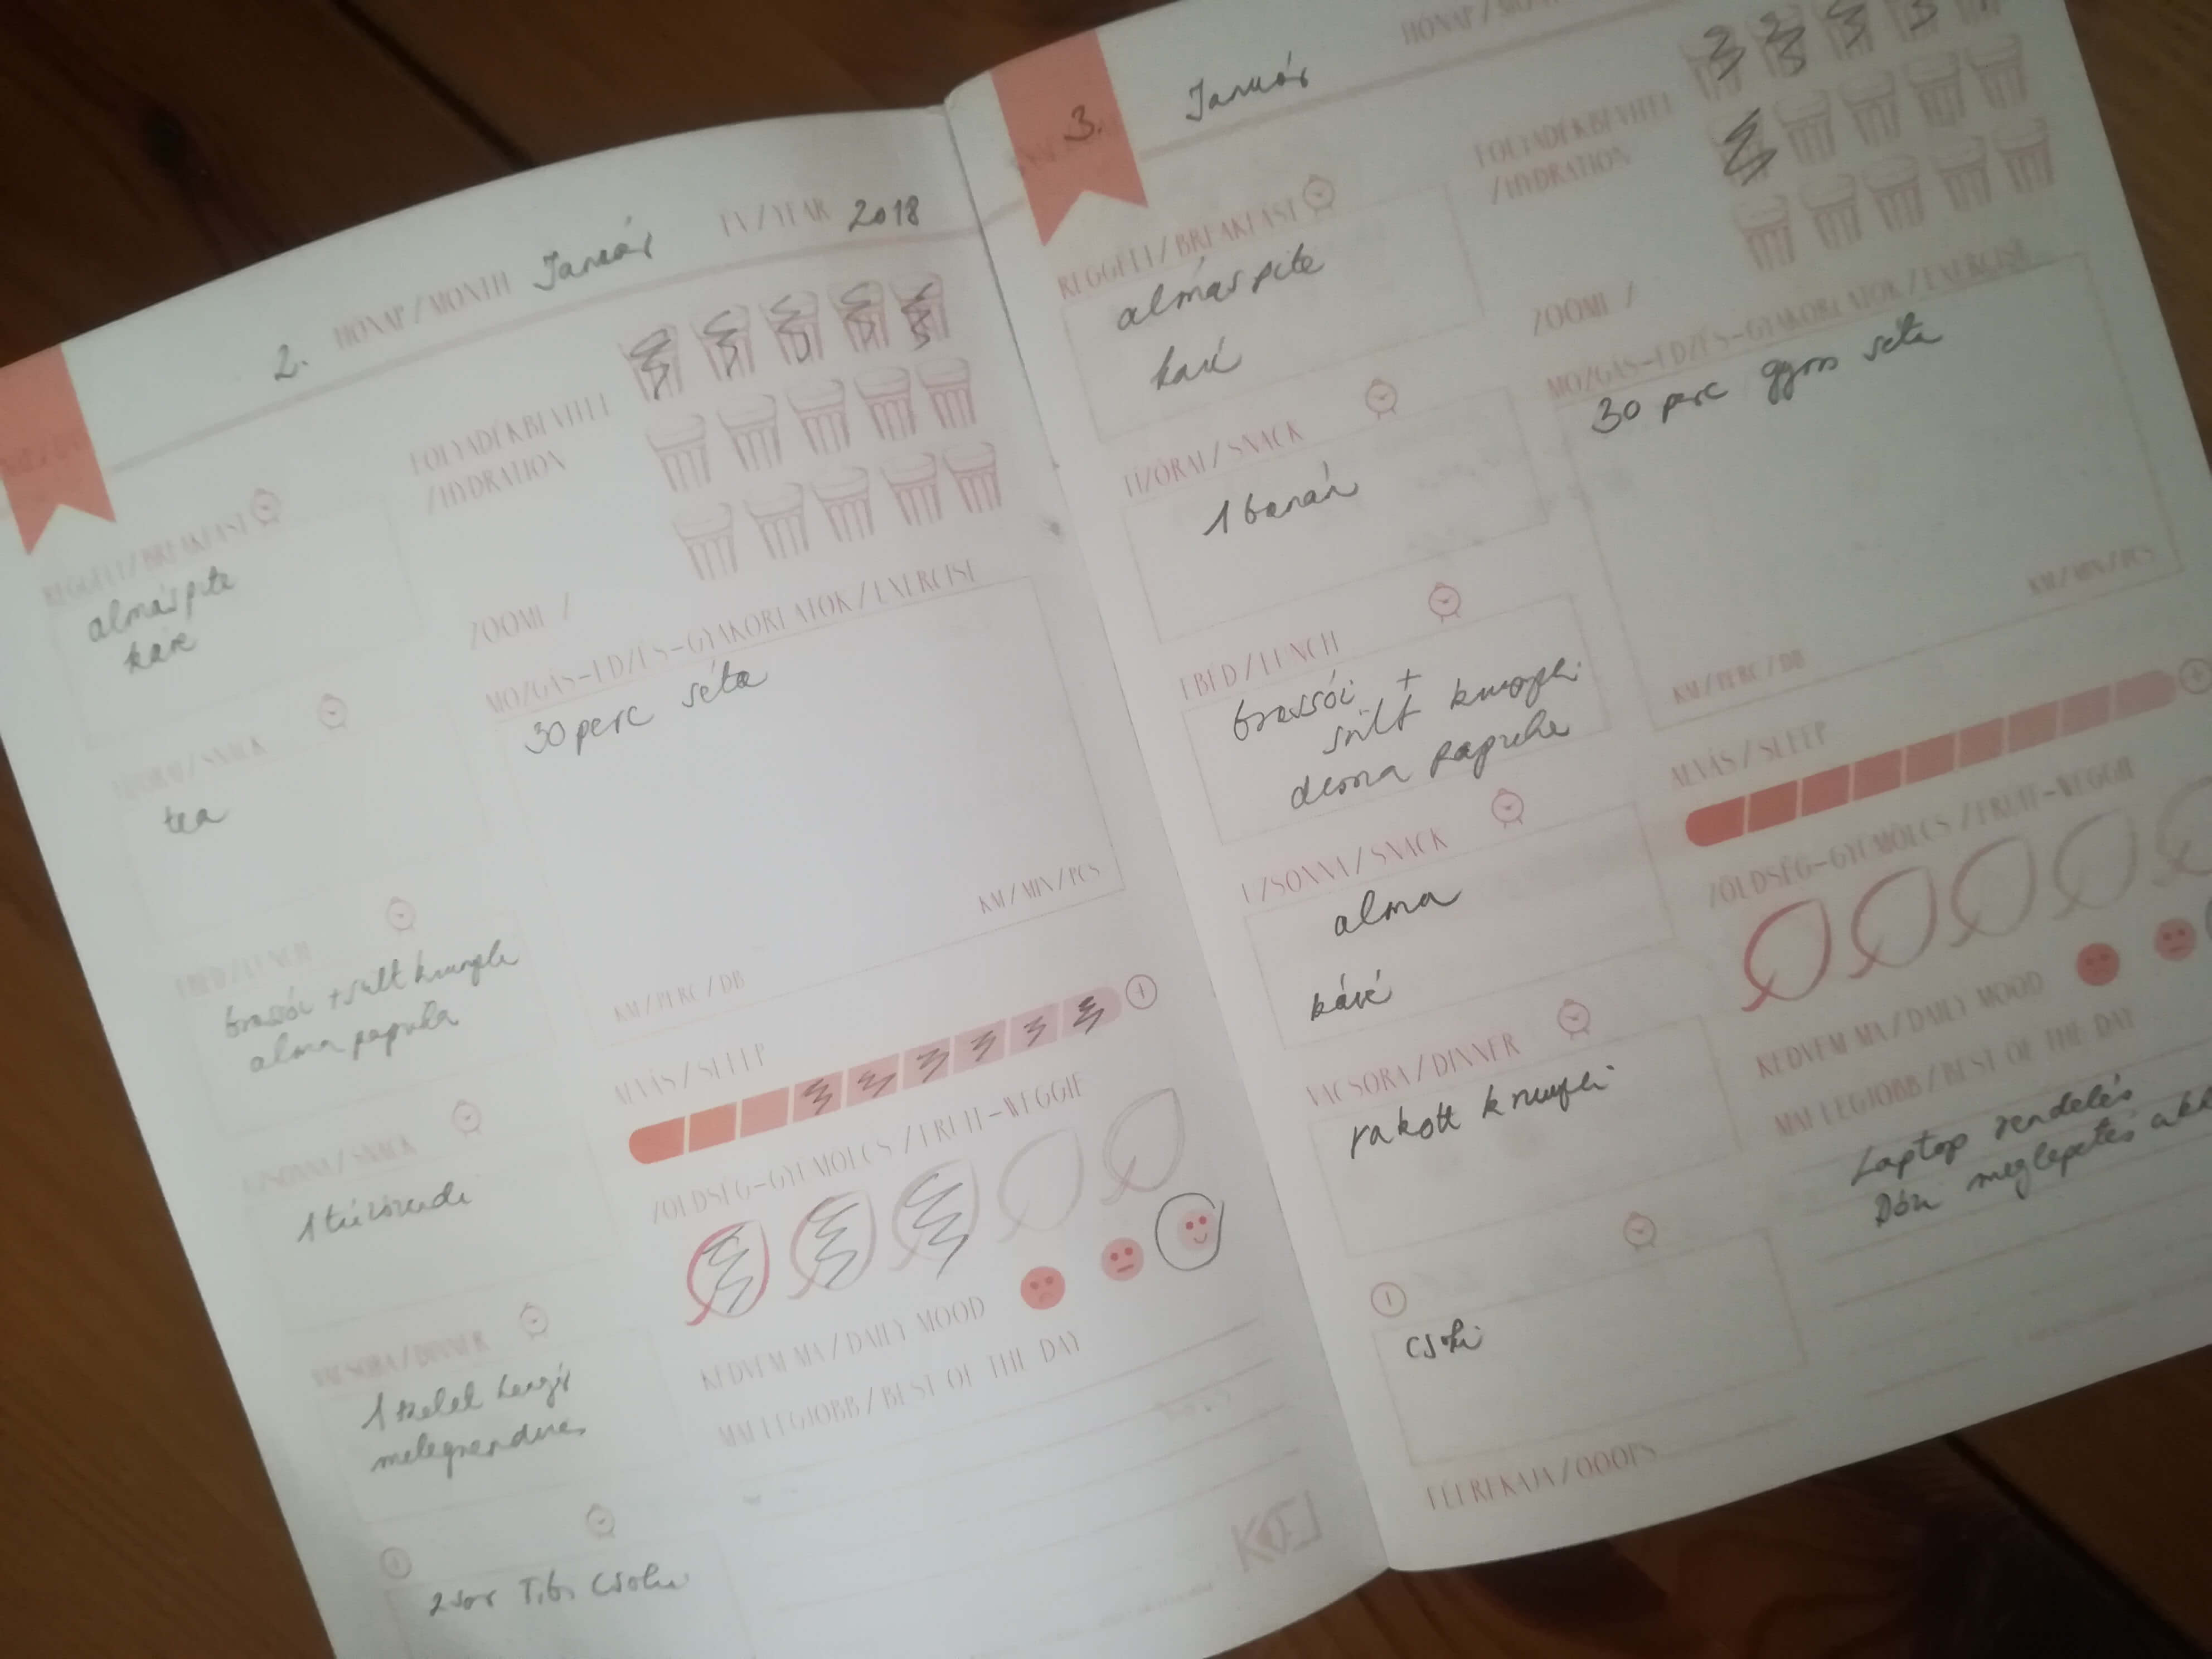 2.
HÓNAP/MONTH Január
ÉV/YEAR 2018
REGGELI/BREAKFAST
almáspite
kávé
FOLYADÉKBEVITEL
/HYDRATION
TÍZÓRAI/SNACK
tea
EBÉD/LUNCH
brassói + sült krumpli
alma paprika
UZSONNA/SNACK
1 túrórudi
VACSORA/DINNER
1 szelet
melegszendvics
2 sor Tibi csoki
MOZGÁS-EDZÉS-GYAKORLATOK/EXERCISE
30 perc séta
KM/MIN/PCS
KM/PERC/DB
ALVÁS/SLEEP
ZÖLDSÉG-GYÜMÖLCS/FRUIT-VEGGIE
KEDVEM MA/DAILY MOOD
MAI LEGJOBB/BEST OF THE DAY
3.
Január
HÓNAP/
REGGELI/BREAKFAST
almáspite
kávé
FOLYADÉKBEVITEL
/HYDRATION
TÍZÓRAI/SNACK
1 banán
EBÉD/LUNCH
brassói +
sült krumpli
paprika
UZSONNA/SNACK
alma
kávé
VACSORA/DINNER
rakott krumpli
csoki
FÉLREKAJA/OOOPS
MOZGÁS-EDZÉS-GYAKORLATOK/EXERCISE
30 perc gyors séta
KM/MIN/PCS
KM/PERC/DB
ALVÁS/SLEEP
ZÖLDSÉG-GYÜMÖLCS/FRUIT-VEGGIE
KEDVEM MA/DAILY MOOD
MAI LEGJOBB/BEST OF THE DAY
Laptop rendelés
meglepetés